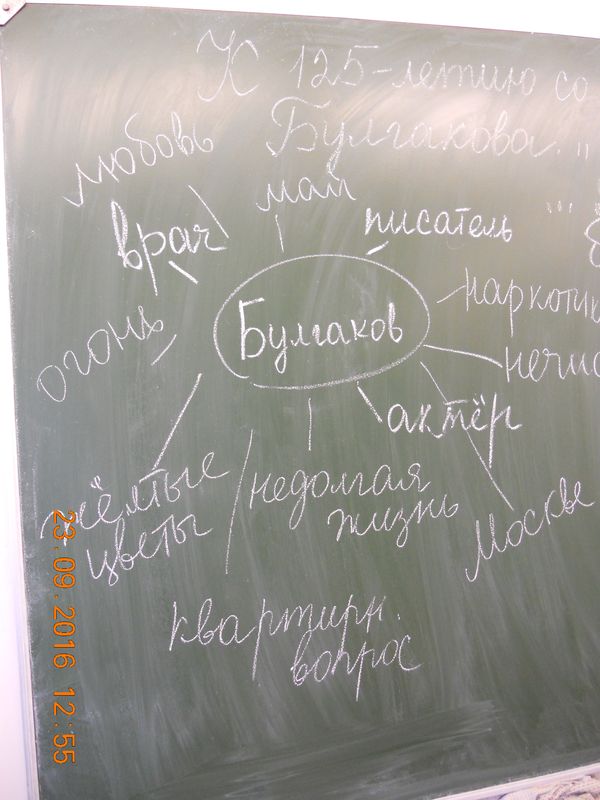 К 125-летию со
Булгакова. "
любовь
май
врач
писатель
Булгаков
наркотик
огонь
нечис
актёр
жёлтые
цветы
недолгая
жизнь
Москве
квартирн.
вопрос
23.09.2016 12:55